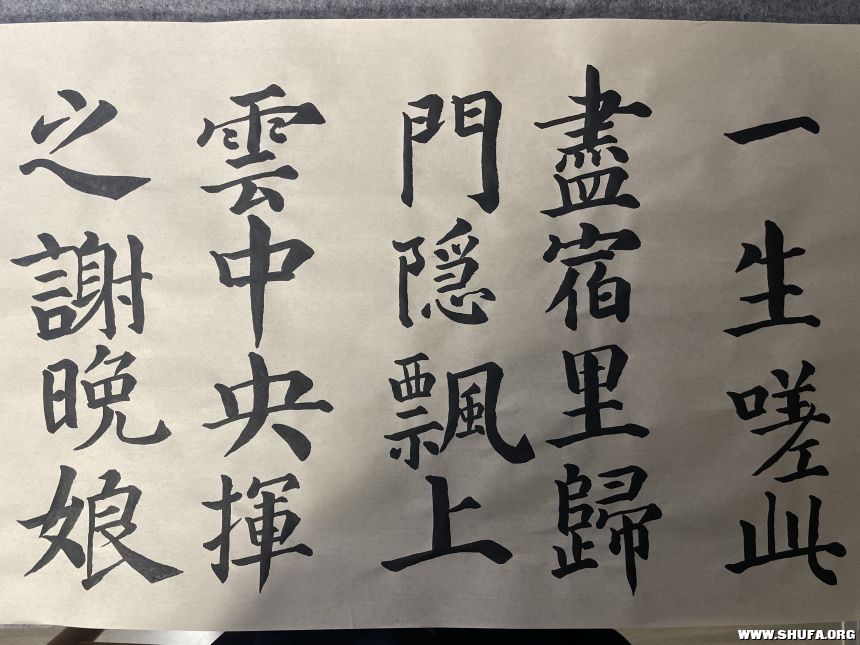 一生嗟此
盡宿里歸
門隠飄上
雲中央揮
之謝晚娘
WWW.SHUFA.ORG